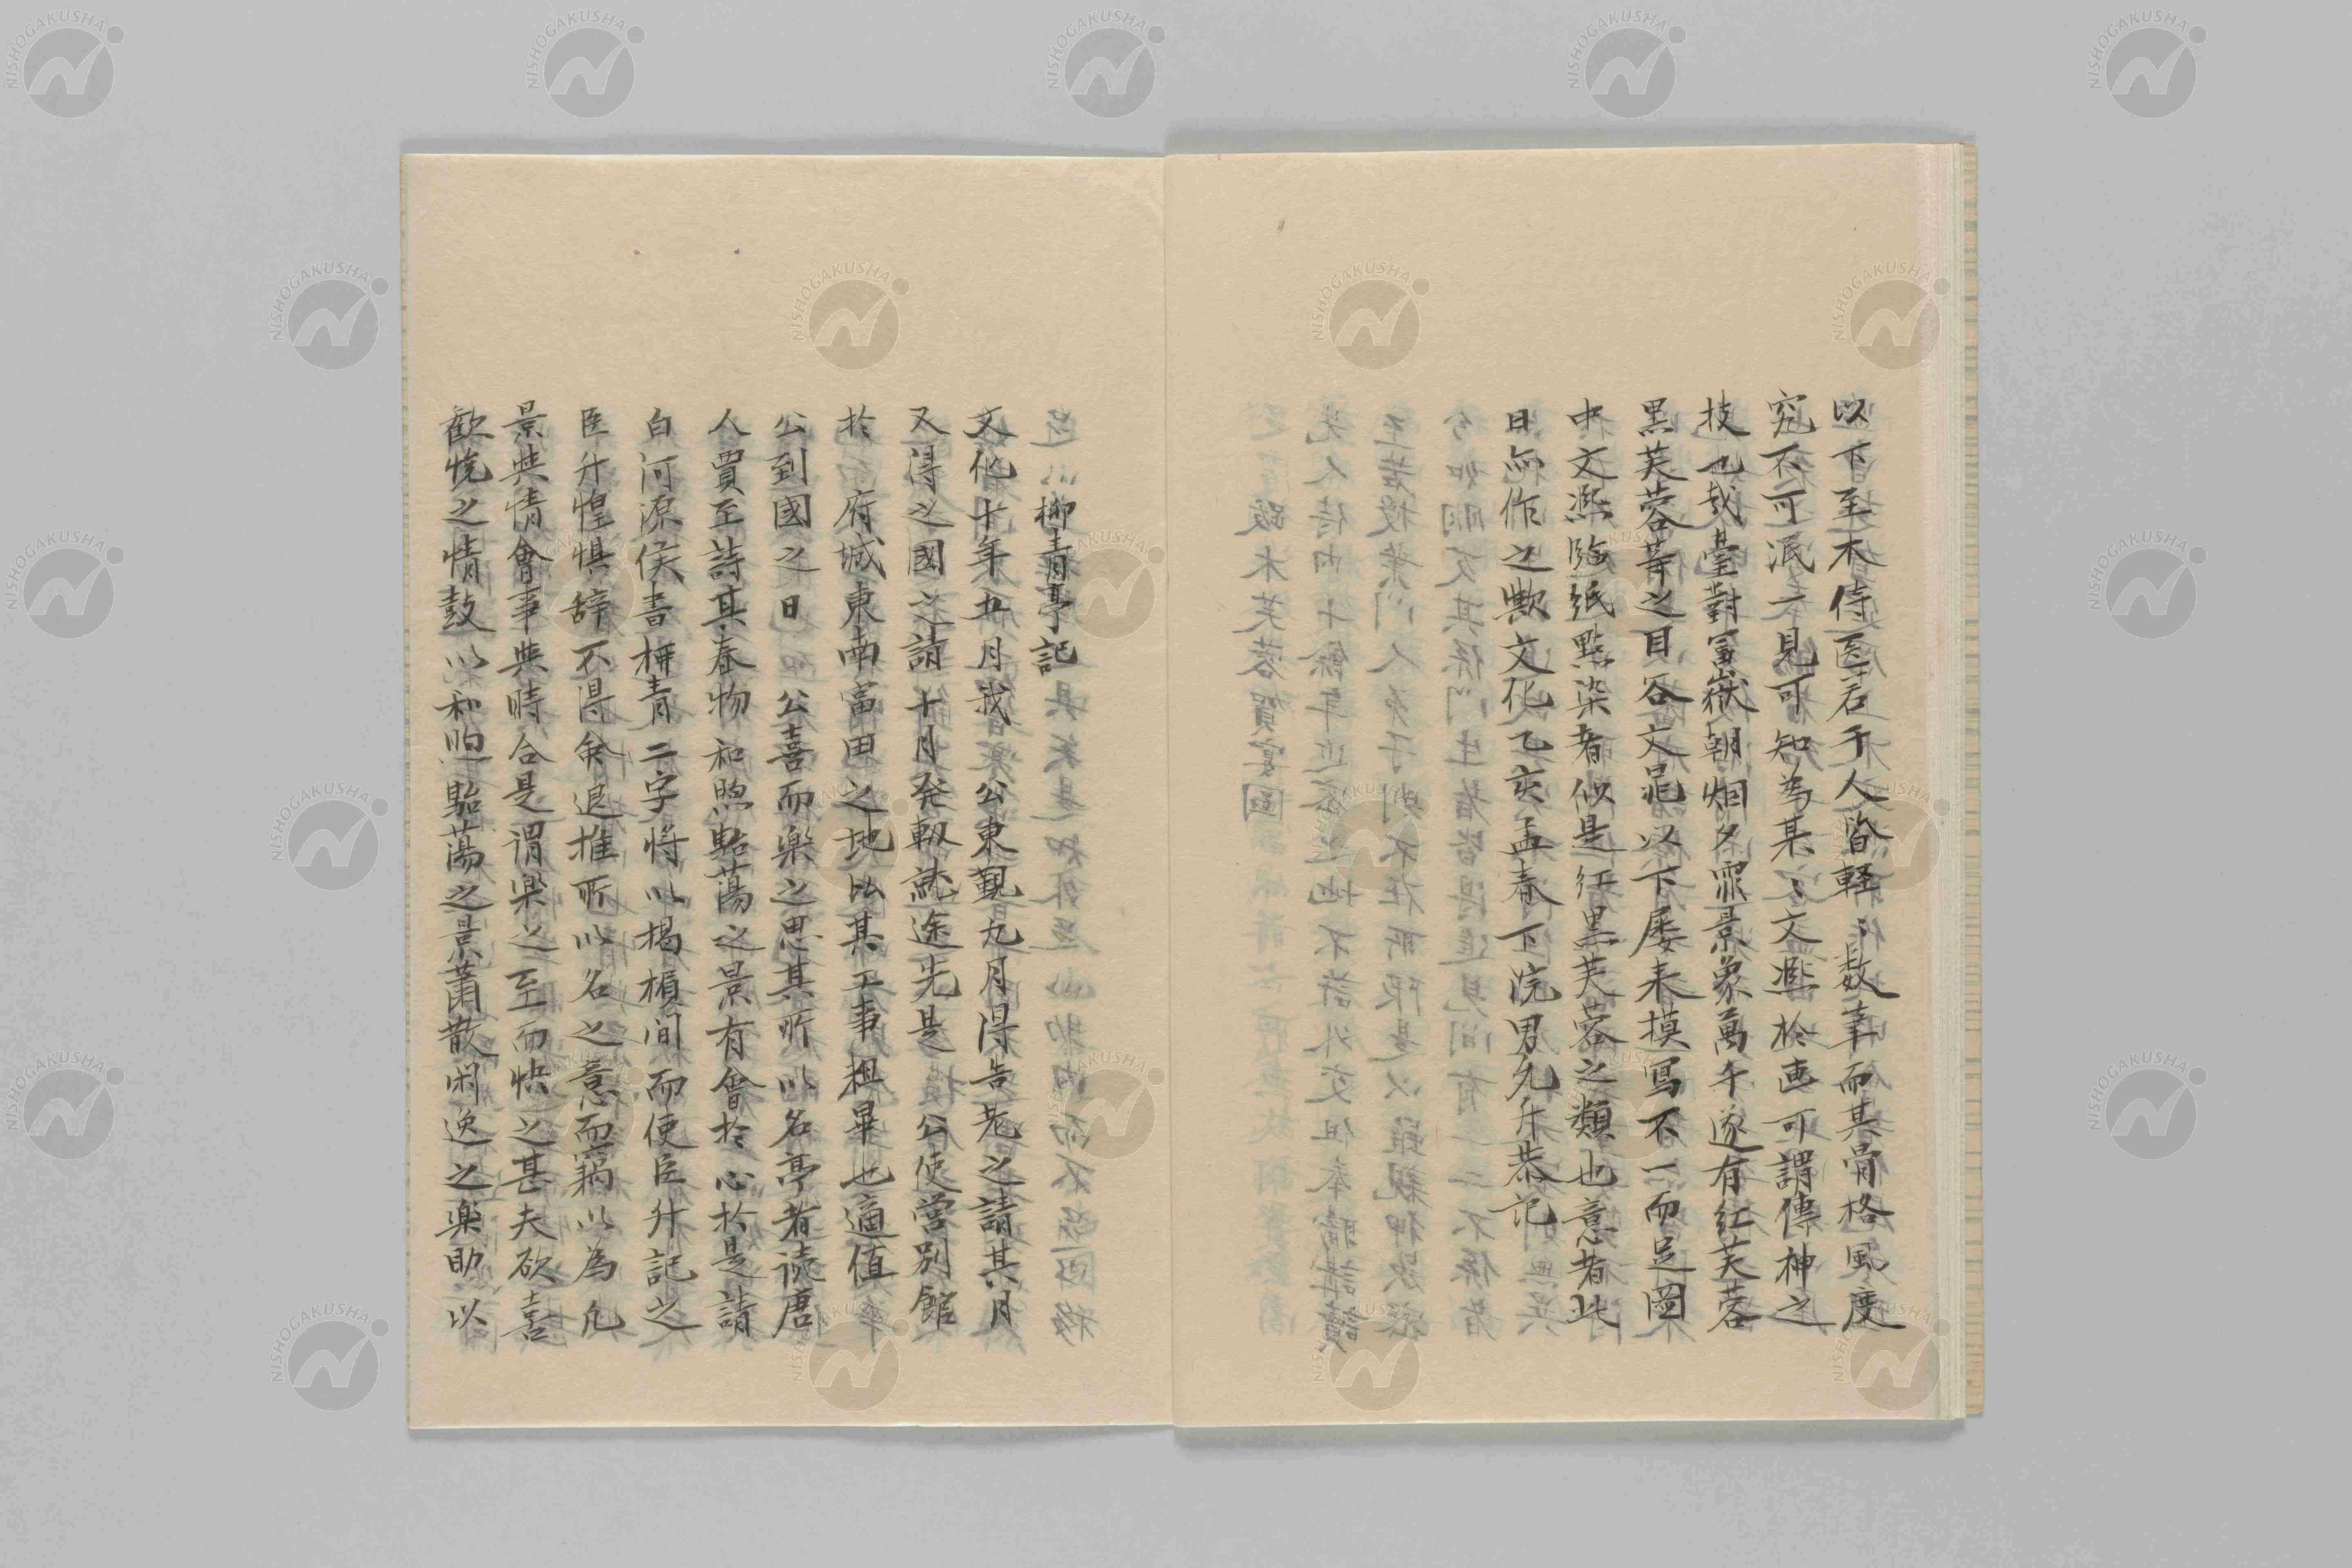 以下至木侍医若干人皆軽〻数筆而其骨格風度
究不可泯一見可知為某〻文凞於画可謂傳神之
技也哉臺對富嶽朝烟夕霏景象萬千遂有紅芙蓉
黒芙蓉等之目谷文晁以下屡来摸寫不一而足図
中文凞臨紙點染者似是紅黒芙蓉之類也意者此
日而作之歟文化乙亥孟春下浣男允升恭記
柳青亭記
文化十年五月我公東覲九月得告老之請其月
又得之國之請十月発軔就途先是 公使営別館
於 府城東南富田之地比其工事粗畢也適値
公到國之日 公喜而樂之思其所以名亭者读唐
人賈至詩其春物和煦駘蕩之景有會於心於是請
白河源侯書柳青二字将以掲楣间而使臣升記之
臣升惶惧辞不得命退推所以名之意而竊以為凡
景與情會事與時合是谓樂之至而快之甚夫欲喜
歓悦之情鼓以和煦駘蕩之景蕭散闲逸之樂助以